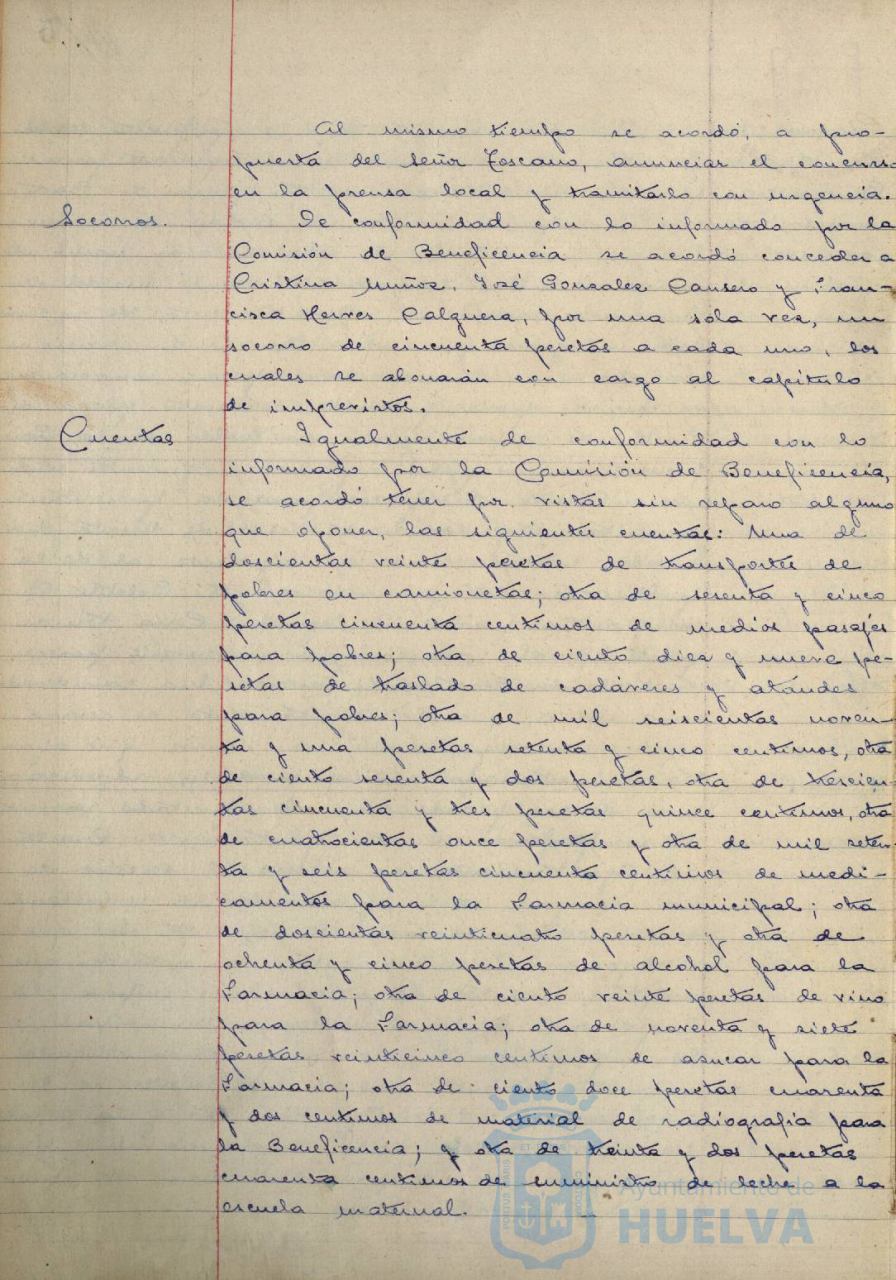 Al mismo tiempo se acordó, a pro-
puesta del señor Toscano, anunciar el concurso
en la prensa local y tramitarlo con urgencia.
Socorros. De conformidad con lo informado por la
Comisión de Beneficencia se acordó conceder a
Cristina Muñoz, José Gonzalez Cansero y Fran-
cisca Herves Calguera, por una sola vez, un
socorro de cincuenta pesetas a cada uno, los
cuales se abonarán con cargo al capítulo
de imprevistos.
Cuentas Igualmente de conformidad con lo
informado por la Comisión de Beneficencia,
se acordó tener por vistas sin reparo alguno
que oponer, las siguientes cuentas: Una de
doscientas veinte pesetas de transportes de
pobres en camionetas; otra de sesenta y cinco
pesetas cincuenta centimos de medios pasajes
para pobres; otra de ciento diez y nueve pe-
setas de traslado de cadáveres y ataudes
para pobres; otra de mil seiscientas noven-
ta y una pesetas setenta y cinco centimos, otra
de ciento sesenta y dos pesetas, otra de trescien-
tas cincuenta y tres pesetas quince centimos, otra
de cuatrocientas once pesetas y otra de mil seten-
ta y seis pesetas cincuenta centimos de medi-
camentos para la Farmacia municipal; otra
de doscientas veinticuatro pesetas y otra de
ochenta y cinco pesetas de alcohol para la
Farmacia; otra de ciento veinte pesetas de vino
para la Farmacia; otra de noventa y siete
pesetas veinticinco centimos de azucar para la
Farmacia; otra de ciento doce pesetas cuarenta
y dos centimos de material de radiografia para
la Beneficencia; y otra de treinta y dos pesetas
cuarenta centimos de suministro de leche a la
escuela maternal.
Ayuntamiento de
HUELVA